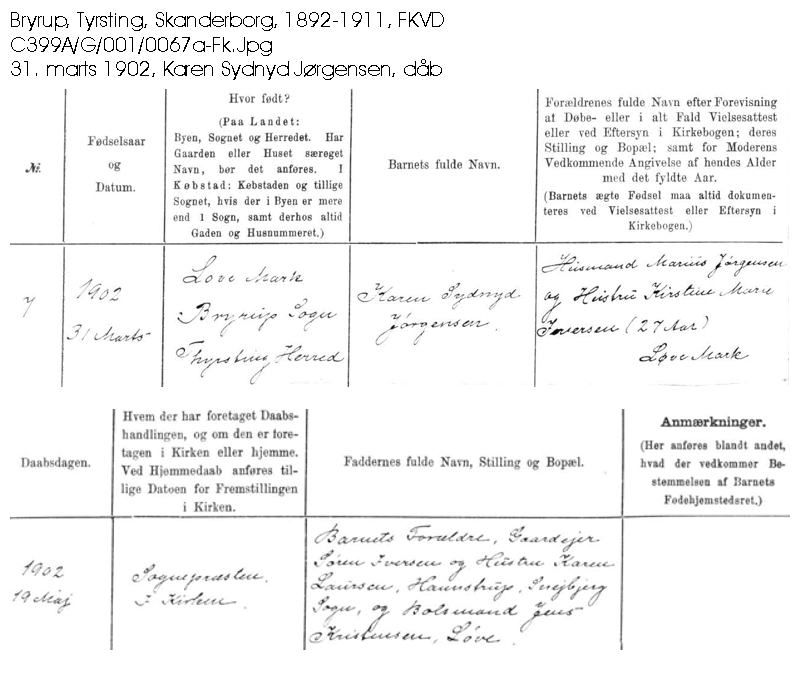 Bryrup, Tyrsting, Skanderborg, 1892-1911, FKVD
C399A/G/001/0067a-Fk.Jpg
31. marts 1902, Karen Sydnyd Jørgensen, dåb
№.
Fødselsaar
og
Datum.
Hvor født?
(Paa Landet:
Byen, Sognet og Herredet. Har
Gaarden eller Huset særeget
Navn, bør det anføres. I
Købstad: Købstaden og tillige
Sognet, hvis der i Byen er mere
end 1 Sogn, samt derhos altid
Gaden og Husnummeret.)
Barnets fulde Navn.
Forældrenes fulde Navn efter Forevisning
af Døbe- eller i alt Fald Vielsesattest
eller ved Eftersyn i Kirkebogen; deres
Stilling og Bopæl; samt for Moderens
Vedkommende Angivelse af hendes Alder
med det fyldte Aar.
(Barnets ægte Fødsel maa altid dokumen-
teres ved Vielsesattest eller Eftersyn i
Kirkebogen.)
7
1902
31 Marts
Løve Mark
Bryrup Sogn
Thyrsting Herred
Karen Sydnyd
Jørgensen.
Husmand Marius Jørgensen
og Hustru Kirstine Marie
Iversen (27 Aar)
Løve Mark
Daabsdagen.
Hvem der har foretaget Daabs-
handlingen, og om den er fore-
tagen i Kirken eller hjemme.
Ved Hjemmedaab anføres til-
lige Datoen for Fremstillingen
i Kirken.
Faddernes fulde Navn, Stilling og Bopæl.
Anmærkninger.
(Her anføres blandt andet,
hvad der vedkommer Be-
stemmelsen af Barnets
Fødehjemstedsret.)
1902
19 Maj
Sognepræsten.
I Kirken.
Barnets Forældre, Gaardejer
Søren Iversen og Hustru Karen
Laursen, Haunstrup, Snejbjerg
Sogn, og Bolsmand Jens
Kristensen, Løve.